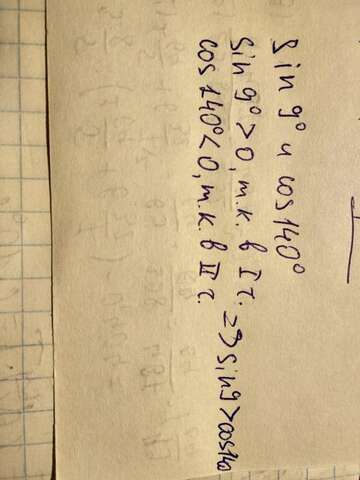 sin 9° и cos 140°
sin 9° > 0, т.к. в I г. => sin 9 > cos 140
cos 140° < 0, т.к. в II г.